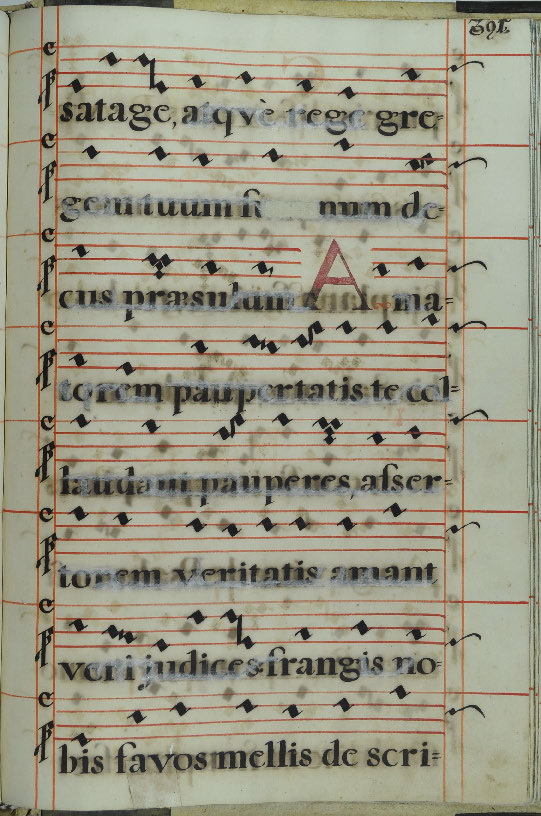 391
satage, atquè rege gre=
gem tuum num de=
cus præsulum Ama=
torem paupertatis te col=
laudant pauperes, aſser=
torem veritatis amant
veri judices: frangis no=
bis favos mellis de scri=